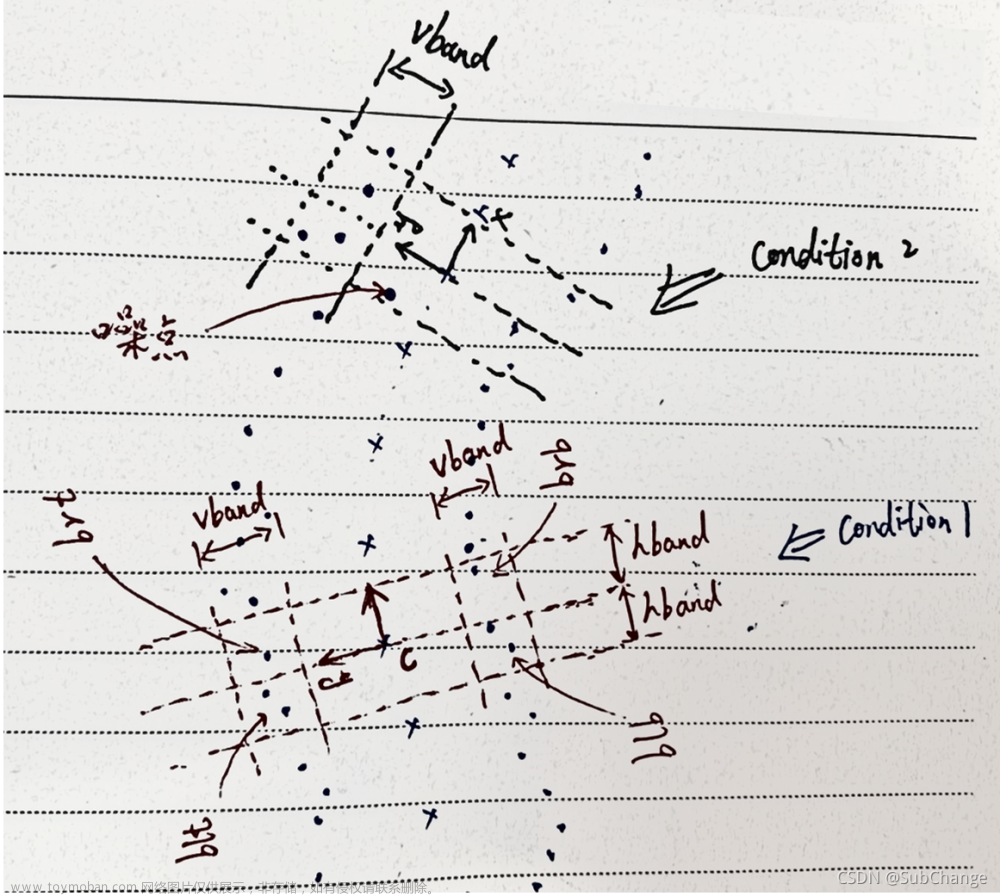 vband
Condition 2
噪点
vband
brb
brt
vband
Condition 1
hband
hband
C
blb
blt
www.toymoban.com 网络图片仅供展示，非存储，如有侵权请联系删除。
CSDN @SubChange